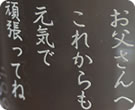 お父さん
これからも
元気で
頑張ってね